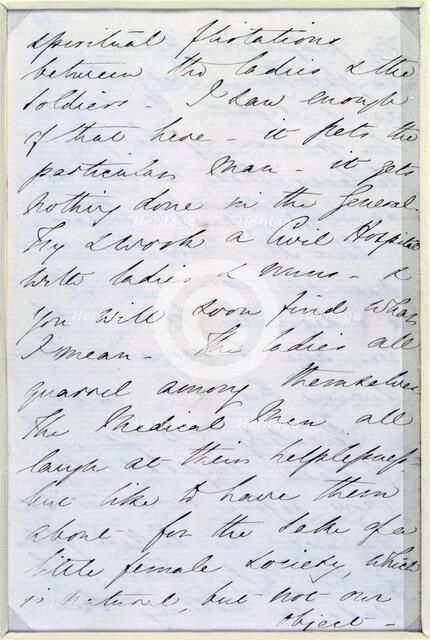 spiritual flirtations
between the ladies & the
soldiers - I saw enough
of that here - it pets the
particular man - it gets
nothing done in the General.
Try & work a Civil Hospital
with ladies & nuns - &
you will soon find what
I mean - The ladies all
quarrel among themselves
The Medical Men all
laugh at their helplessness -
but like to have them
about for the sake of a
little female society, which
is natural, but not our
object -
Heritage
Heritage
Heritage
Heritage
Heritage